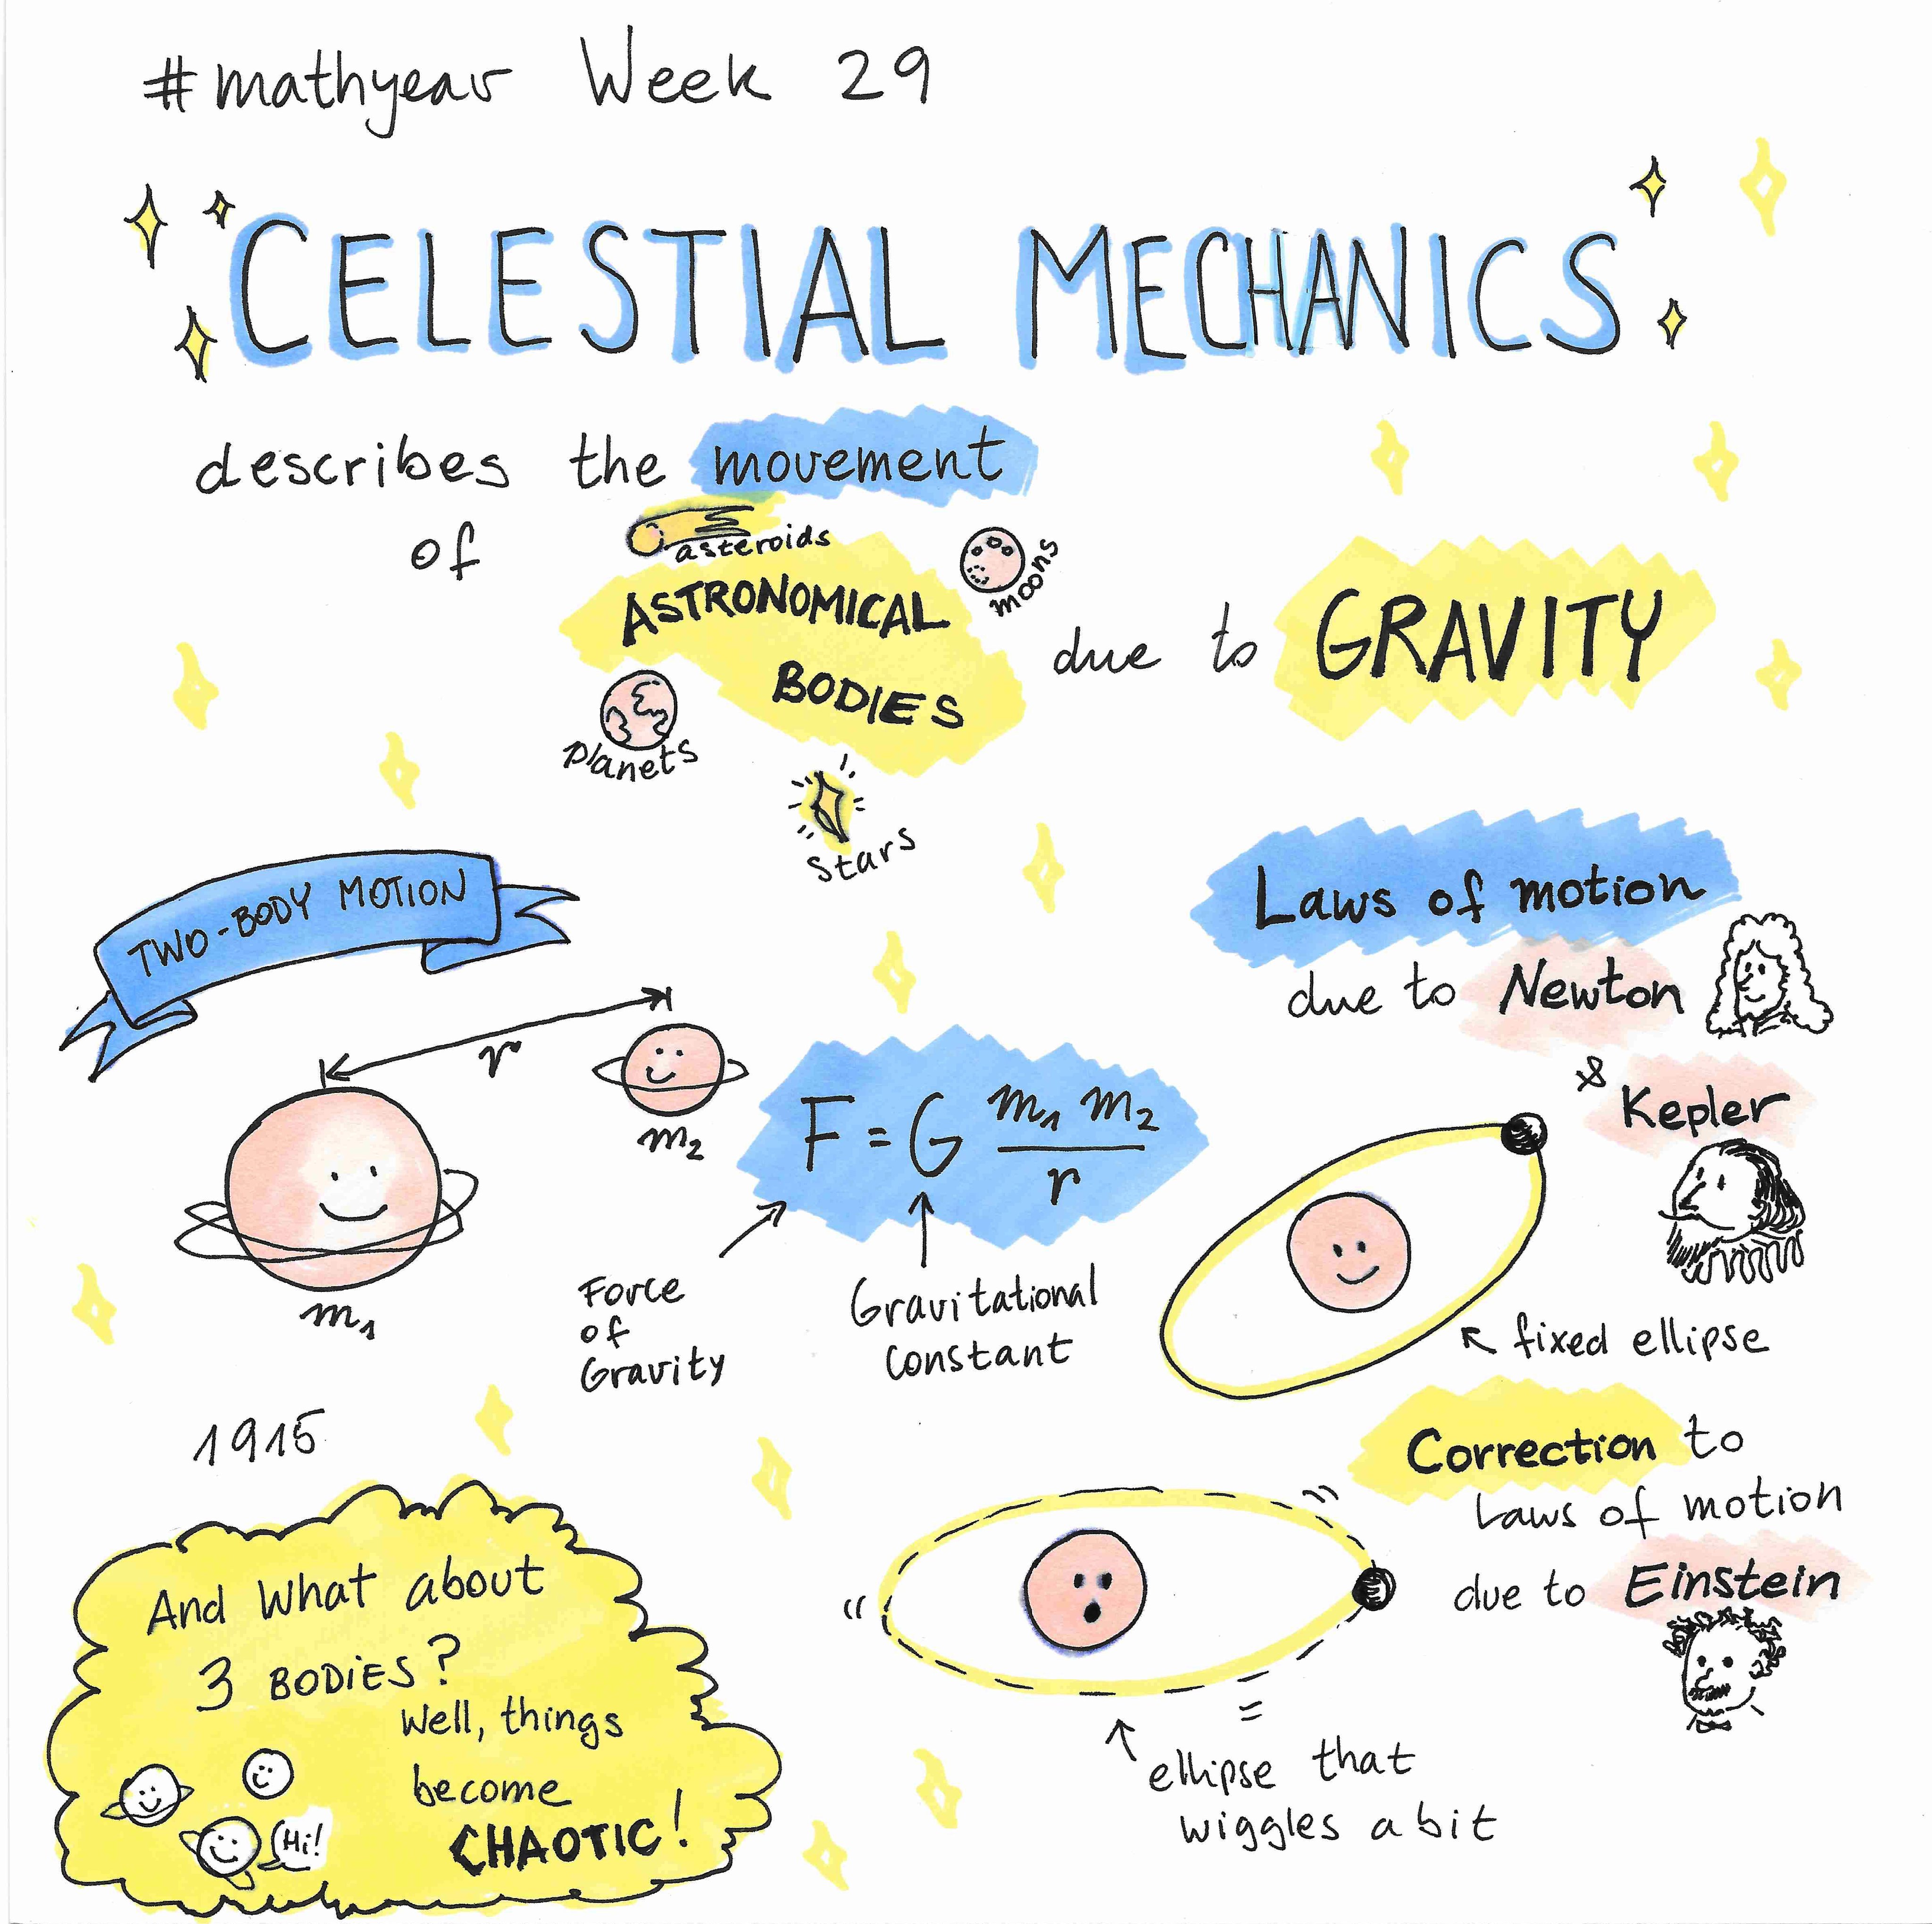 #mathyear Week 29
CELESTIAL MECHANICS
describes the movement
of
asteroids
moons
ASTRONOMICAL
BODIES
planets
stars
due to GRAVITY
TWO-BODY MOTION
r
m₂
m₁
F = G m₁ m₂ / r
Force
of
Gravity
Gravitational
constant
Laws of motion
due to Newton
& Kepler
fixed ellipse
1915
Correction to
Laws of motion
due to Einstein
ellipse that
wiggles a bit
And what about
3 BODiES?
Well, things
become
CHAOTIC!
Hi!